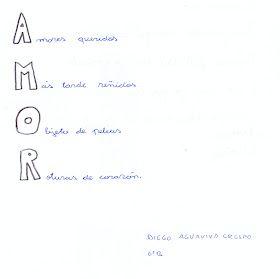 Amores queridos
Más tarde reñidos
Objeto de peleas
Roturas de corazón.
DIEGO AGUAVIVA CRESPO
6ºB